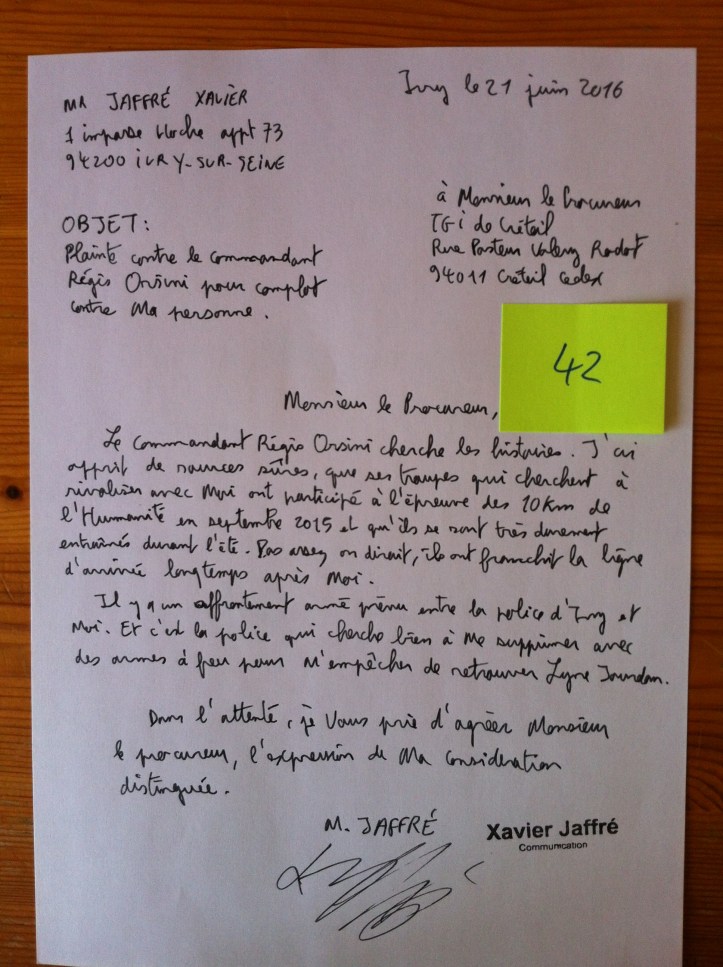 MR JAFFRÉ XAVIER
1 impasse bloche appt 73
94200 IVRY-SUR-SEINE
Ivry le 21 juin 2016
à Monsieur le Procureur
TGI de Créteil
Rue Pasteur Valery Radot
94011 Créteil Cedex
OBJET:
Plainte contre le commandant
Régis Orsini pour complot
contre Ma personne.
42
Monsieur le Procureur,
Le Commandant Régis Orsini cherche les histoires. J'ai
apprit de sources sûres, que ses troupes qui cherchent à
rivaliser avec Moi ont participé à l'épreuve des 10km de
l'Humanité en septembre 2015 et qu'ils se sont très durement
entraînés durant l'été. Pas assez on dirait, ils ont franchit la ligne
d'arrivée longtemps après Moi.
Il y a un affrontement armé prévu entre la police d'Ivry et
Moi. Et c'est la police qui cherche bien à Me supprimer avec
des armes à feu pour M'empêcher de retrouver Lyne Jourdan.
Dans l'attente, je Vous prie d'agréer Monsieur
le procureur, l'expression de Ma considération
distinguée.
M. JAFFRÉ
Xavier Jaffré
Communication